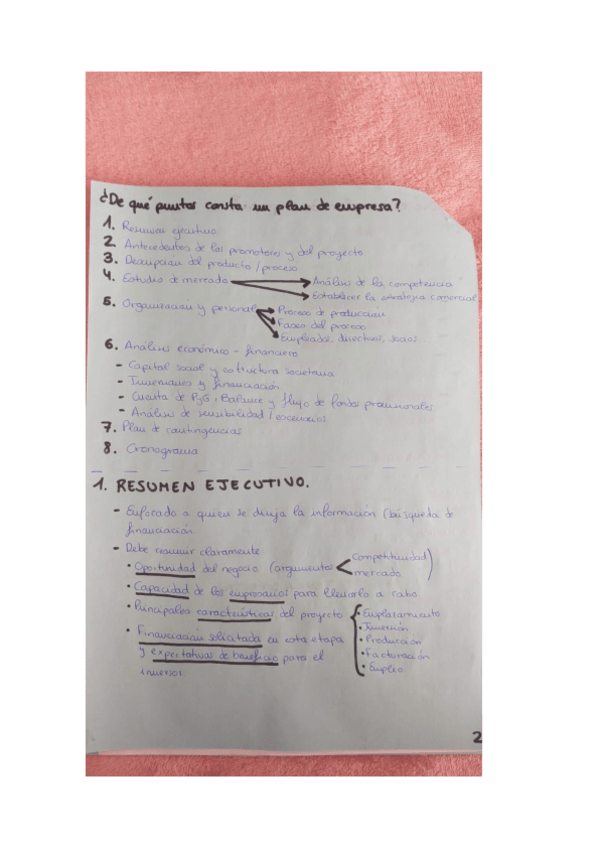 ¿De qué puntos consta un plan de empresa?
1. Resumen ejecutivo
2 Antecedentes de los promotores y del proyecto
3. Descripción del producto / proceso
4. Estudio de mercado → Análisis de la competencia
→ Establecer la estrategia comercial
5. Organización y personal → Proceso de producción
→ Fases del proceso
→ Empleados, directivos, socios
6. Análisis económico - financiero
- Capital social y estructura societaria
- Inversiones y financiación
- Cuenta de PyG, Balance y flujo de fondos provisionales
- Análisis de sensibilidad / escenarios
7. Plan de contingencias
8. Cronograma
1. RESUMEN EJECUTIVO.
- Enfocado a quien se dirija la información (búsqueda de
financiación
- Debe resumir claramente
• Oportunidad del negocio (argumentos < Competitividad
mercado )
• Capacidad de los empresarios para llevarlo a cabo
• Principales características del proyecto { • Emplazamiento
• Inversión
• Financiación solicitada en esta etapa • Producción
y expectativas de beneficio para el • Facturación
• Empleo
inversor
2